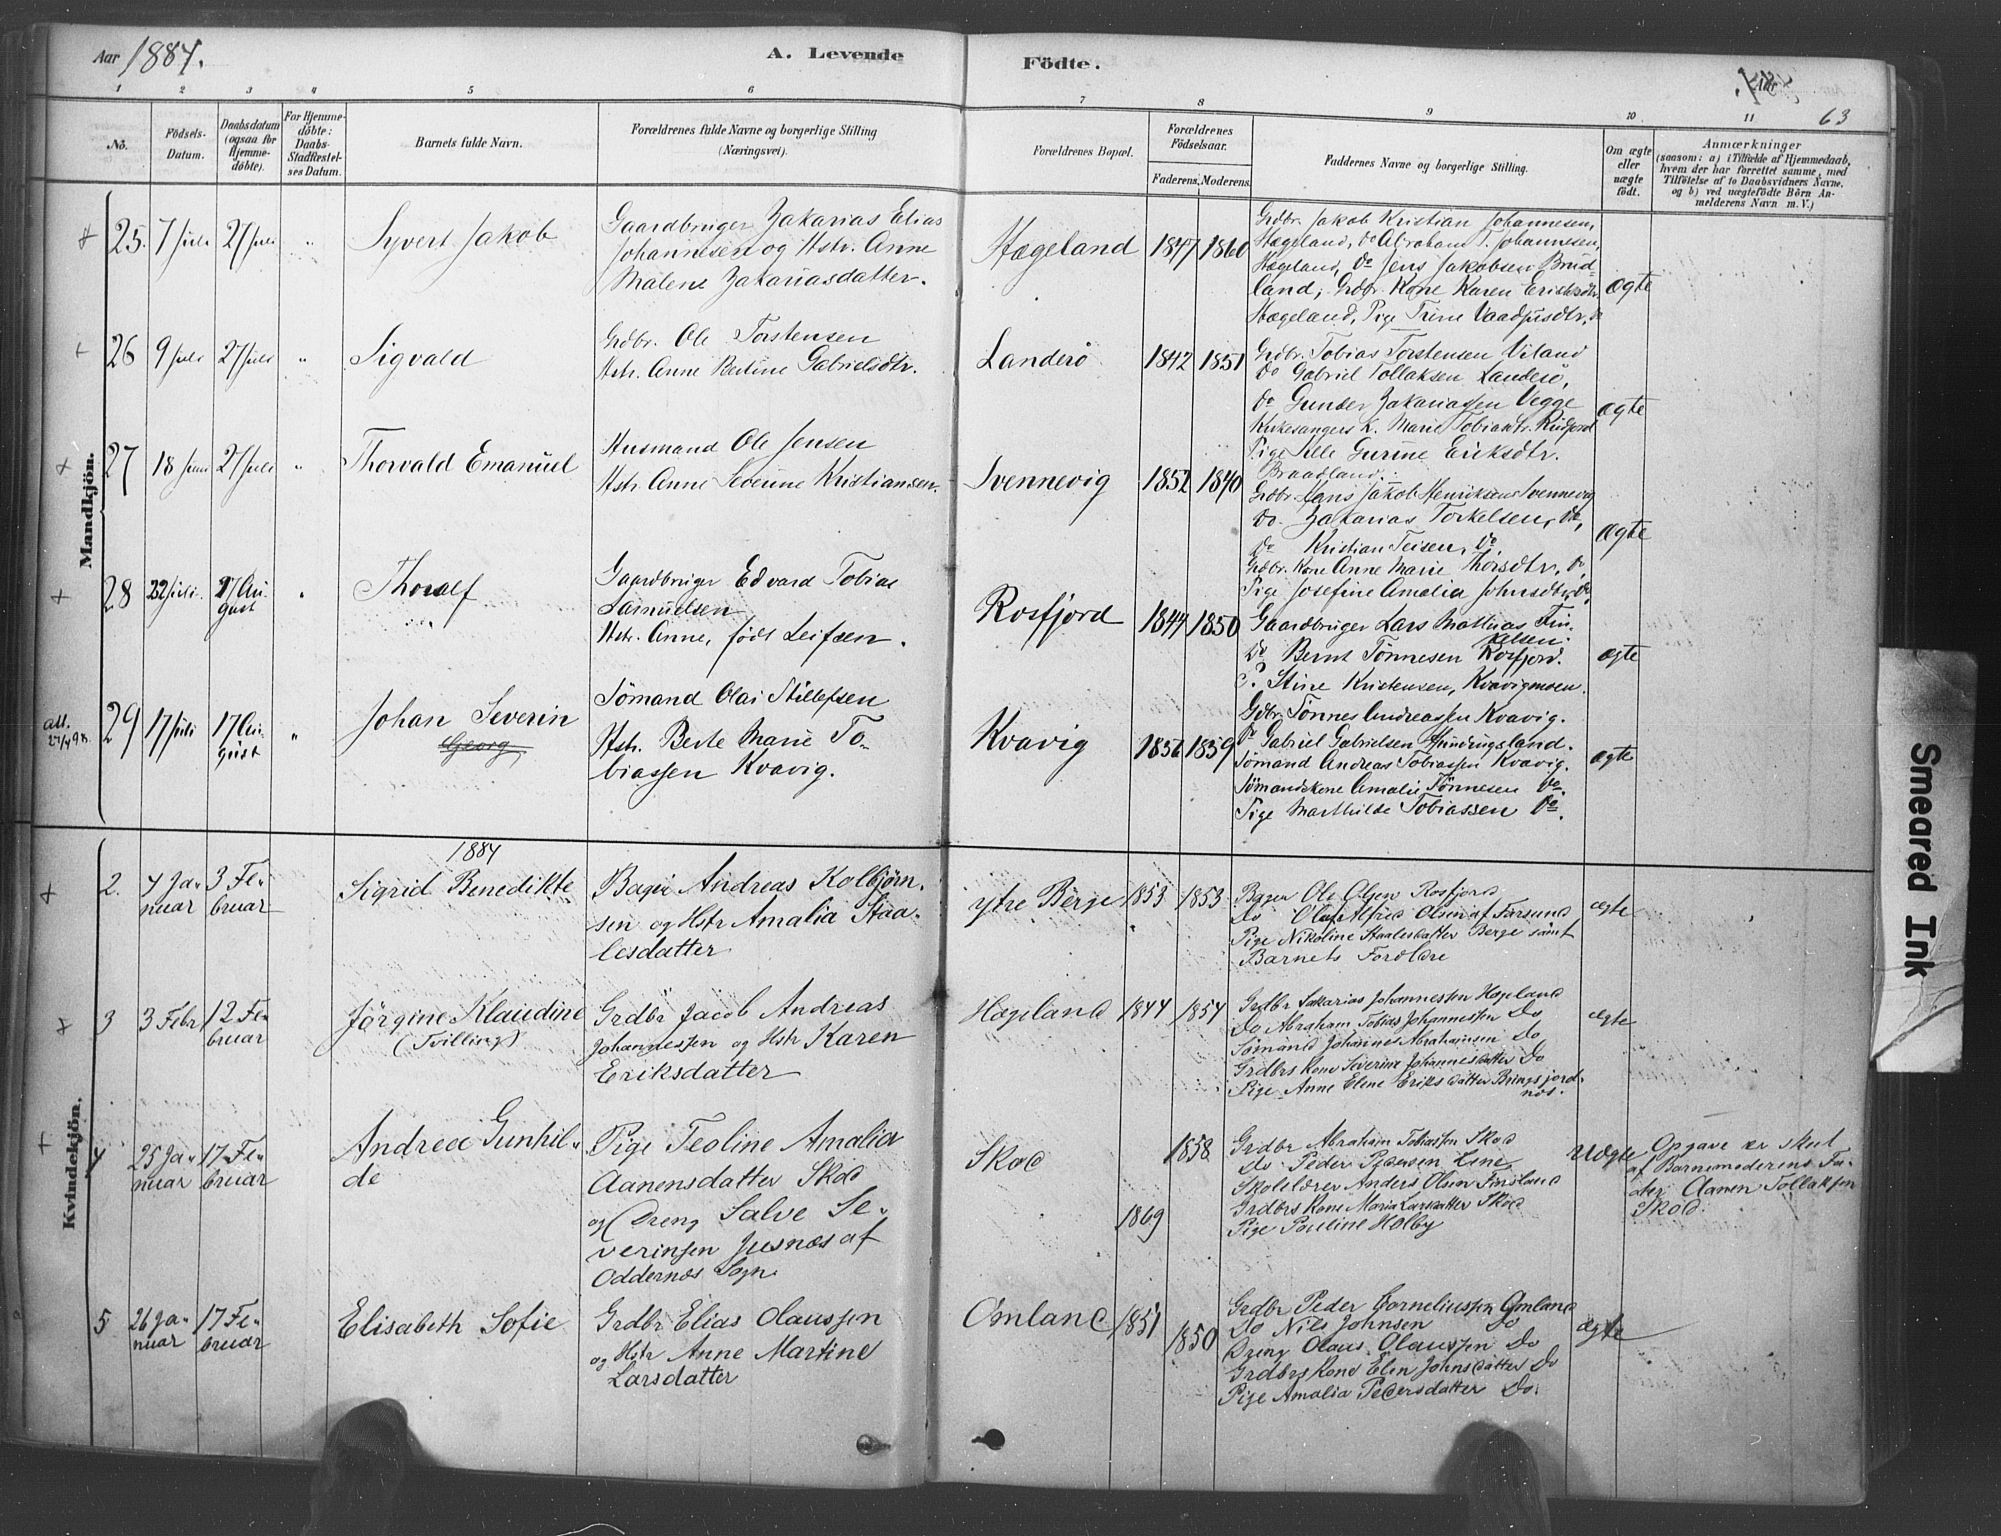 Aar 1884.
A. Levende
Födte.
Aar
63
1 2 3 4 5 6
7 8 9 10 11
No.
Födsels-Datum.
Daabsdatum (ogsaa for Hjemme-döbte).
For Hjemme-döbte: Daabs-Stadfæstel-ses Datum.
Barnets fulde Navn.
Forældrenes fulde Navne og borgerlige Stilling
(Næringsvei).
Forældrenes Bopæl.
Forældrenes Födselsaar.
Faderens. Moderens.
Faddernes Navne og borgerlige Stilling.
Om ægte eller uægte födt.
Anmærkninger
(saasom: a) i Tilfælde af Hjemmedaab,
hvem der har forrettet samme, med
Tilföielse af to Daabsvidners Navne,
og b) ved uægtefödte Börn An-
melderens Navn m. V.)
Mandkjön.
25. 7 juli 27 juli " Syvert Jakob
Gaardbruger Zakarias Elias
Johannesen og Hstr. Anne
Malene Zakariasdatter.
Hægeland 1847 1860
Grdbr. Jakob Kristian Johannesen,
Hægeland, do Abraham T. Johannesen,
Hægeland, do Jens Jakobsen Brud-
land, Grdbr. Kone Karen Eriksdtr.
Hægeland, Pige Trine Vaadjusdtr. do
ægte
26 9 juli 27 juli " Sigvald
Grdbr. Ole Torstensen
Hstr. Anne Bertine Gabrielsdtr.
Landerö 1842 1851
Grdbr. Tobias Torstensen Viland
do Gabriel Tollaksen Landerö,
do Gunder Zakariassen Vegge
Kirkesangers K. Marie Tobiasdtr. Rudjord
Pige Sille Gurine Eriksdtr.
Braadland.
ægte
27 18 juni 27 juli " Thorvald Emanuel
Husmand Ole Jensen
Hstr. Anne Severine Kristiansen.
Svennevig 1852 1840
Grdbr. Hans Jakob Henriksen Svennevig
do. Zakarias Torkelsen, do,
do Kristian Teisen, do
Grdbr. Kone Anne Marie Thorsdtr. do,
Pige Josefine Amalia Johnsdtr, do.
ægte
28 22 juli. 17 Au-gust " Thoralf
Gaardbruger Edvard Tobias
Samuelsen
Hstr. Anne, födt Leifsen.
Rosfjord 1844 1850
Gaardbruger Lars Mathias Fin-
kelsen.
do Bernt Tönnesen Rosfjord.
P. Stine Kristensen, Kvavigmoen.
ægte
att. 27/4 98.
29 17 juli 17 Au-gust " Johan Severin
Georg
Sömand Olai Stillefsen
Hstr. Berte Marie To-
biassen Kvavig.
Kvavig 1856 1859
Grdbr. Tönnes Andreassen Kvavig.
do Gabriel Gabrielsen Hundingsland.
Sömand Andreas Tobiassen Kvavig.
Sömandskone Amalie Tönnesen do.
Pige Marthilde Tobiassen do.
ægte
Kvindekjön.
1884
2. 4 Ja-nuar 3 Fe-bruar Sigrid Benedikte
Bager Andreas Kolbjörn-
sen og Hstr Amalia Staa-
lesdatter
ytre Berge 1853 1853
Bager Ole Olsen Rosfjord
Do Oluf Alfred Olsen af Farsund
Pige Nikoline Staalesdatter Berge samt
Barnets Forældre
ægte
3 3 Febr 12 Fe-bruar Jörgine Klaudine
(Tvilling)
Grdbr Jacob Andreas
Johannessen og Hstr Karen
Eriksdatter
Hægeland 1844 1854
Grdbr Sakarias Johannessen Hægeland
Do Abraham Tobias Johannessen Do
Sömand Johannes Abrahamsen Do
Grdbrs Kone Severine Johannesdatter Do
Pige Anne Elene Eriksdatter Bringsjord-
næs.
ægte
4 25 Ja-nuar 17 Fe-bruar Andrea Gunhil-
de
Pige Teoline Amalia
Aanensdatter Skod
og Dreng Salve Se-
verinsen Jusnæs af
Oddernæs Sogn
Skod 1869 1858
Grdbr Abraham Tobiassen Skod
Do Peder Pedersen Lene
Skolelærer Anders Olsen Finsland
Grdbrs Kone Maria Larsdatter Skod
Pige Pauline Holby
Uægte
Opgave er skeet
af Barnemoderens Fa-
der Aanen Tollaksen
Skod.
5 26 Ja-nuar 17 Fe-bruar Elisabeth Sofie
Grdbr Elias Olaussen
og Hstr Anne Martine
Larsdatter
Omland 1851 1850
Grdbr Peder Corneliussen Omland
Do Nils Johnsen Do
Dreng Olaus Olaussen Do
Grdbrs Kone Elen Johnsdatter Do
Pige Amalia Pedersdatter Do
ægte
Smeared Ink